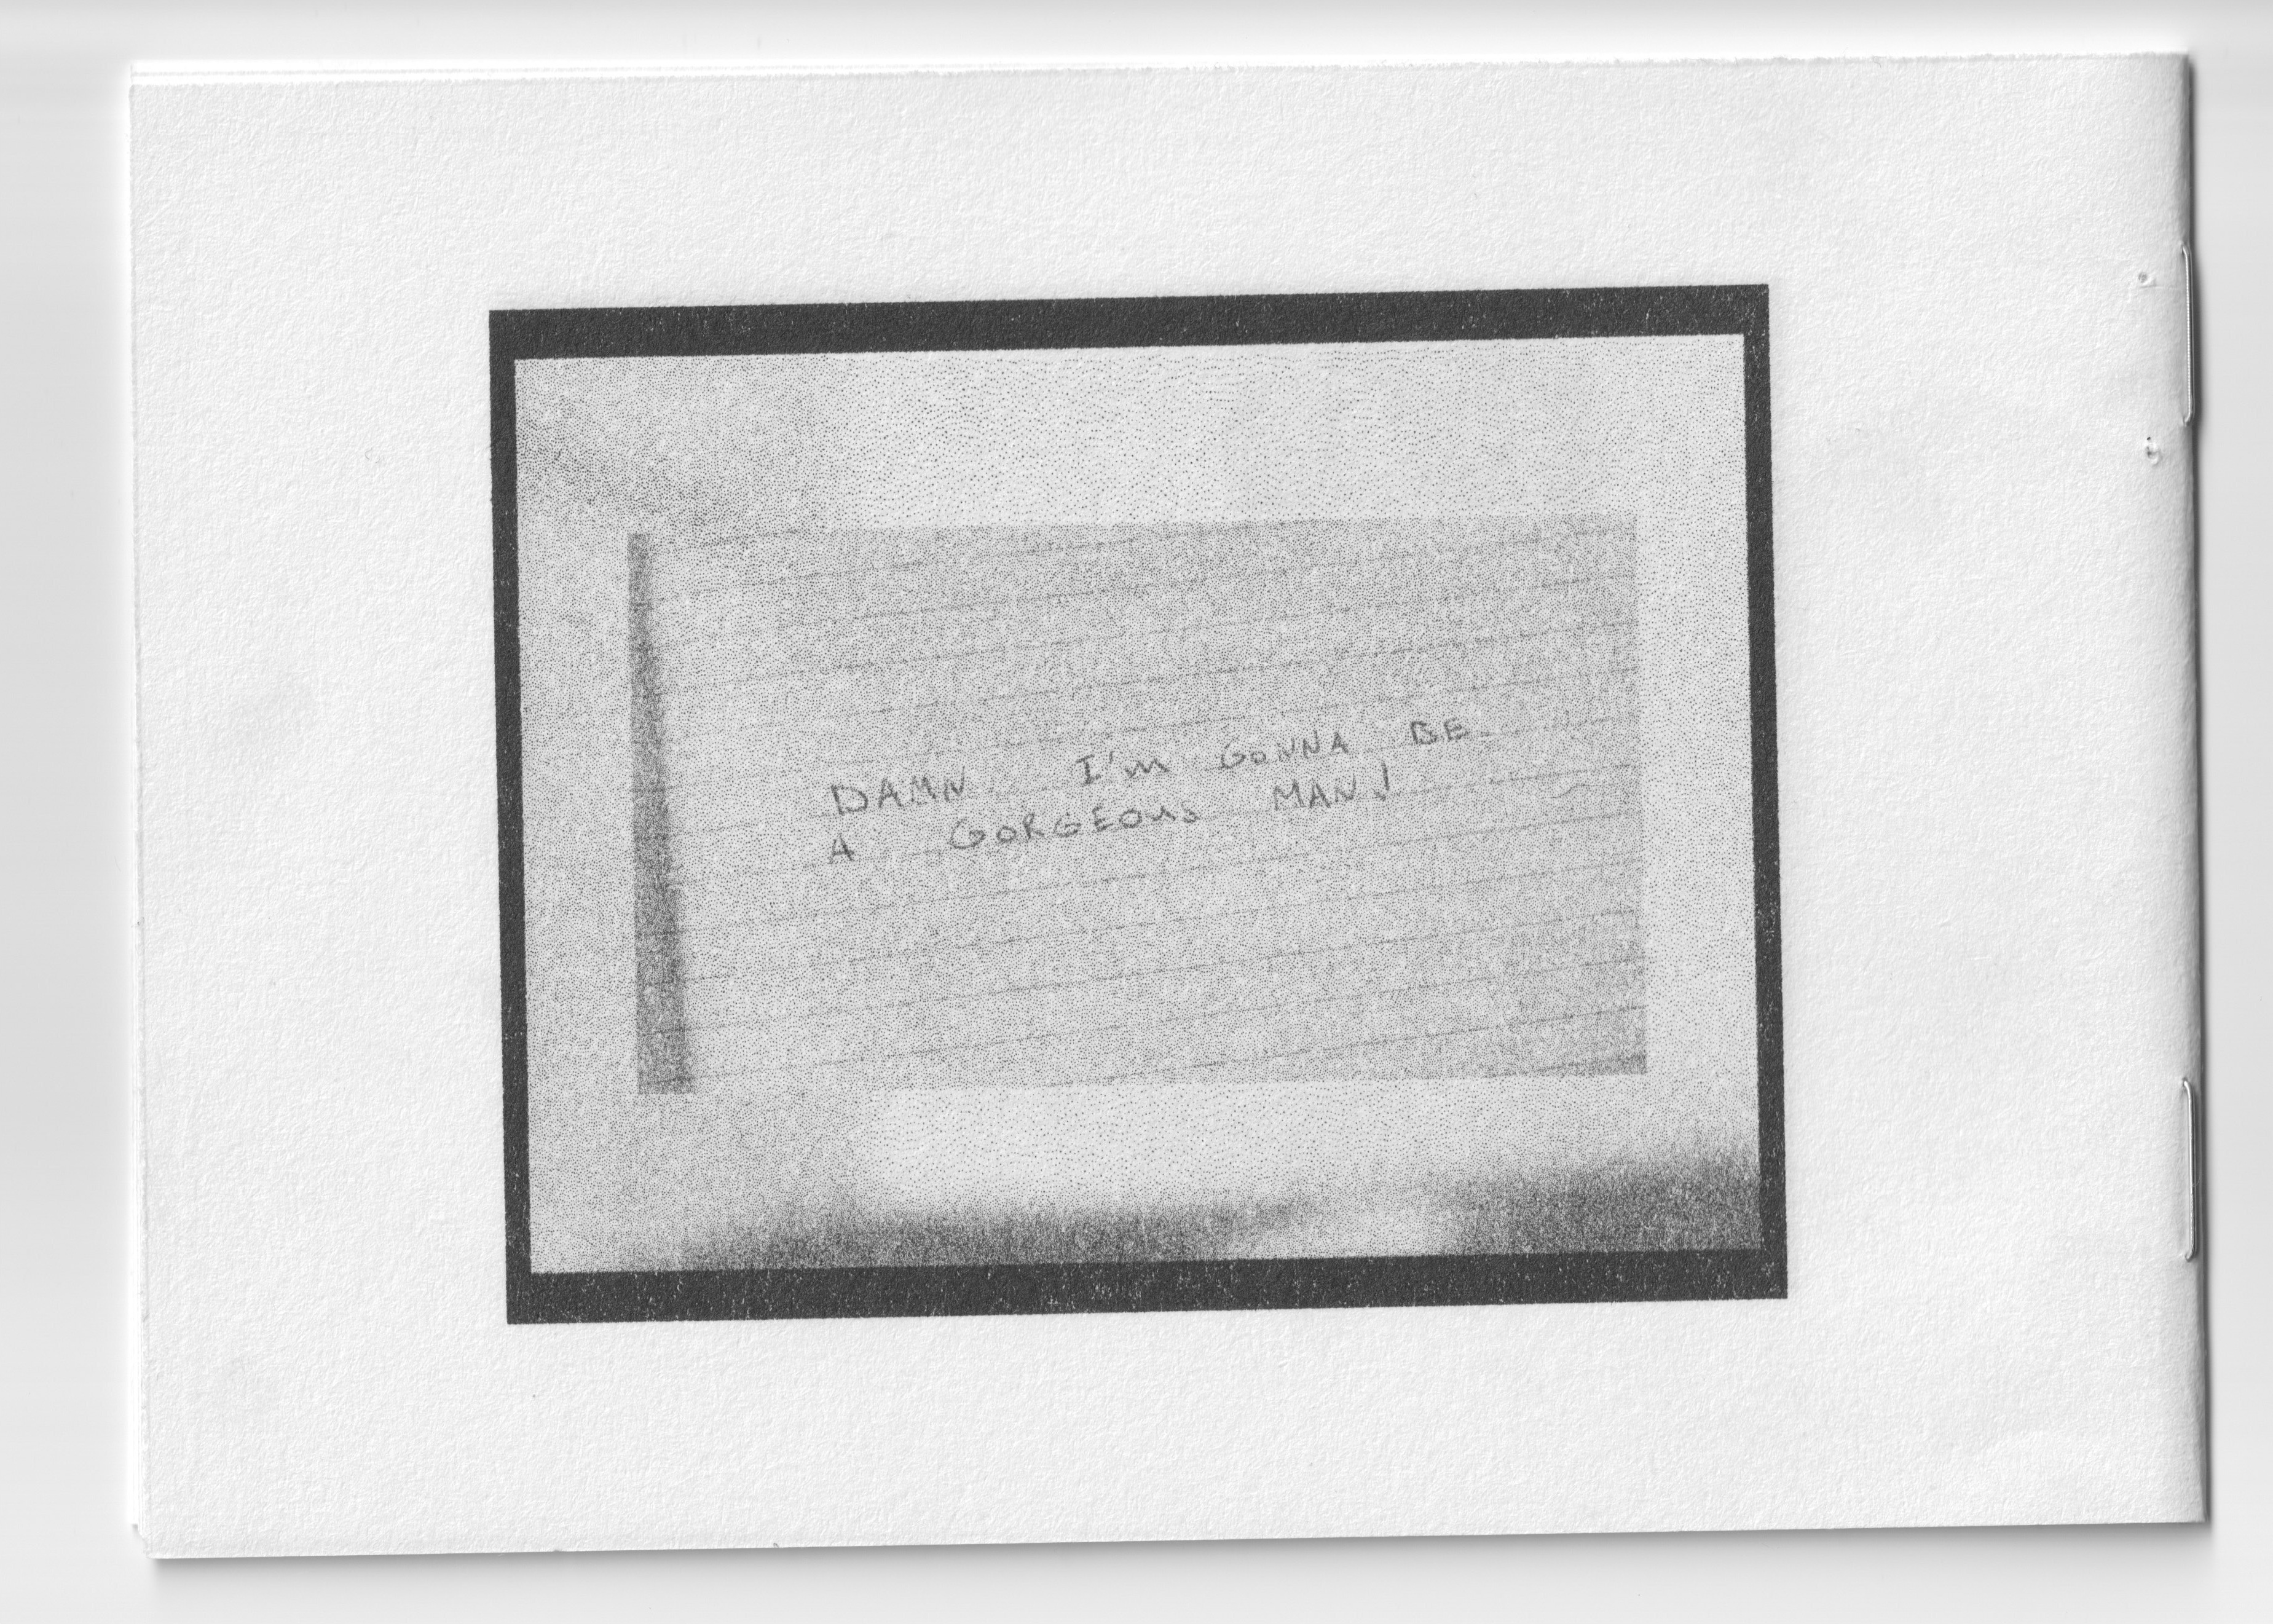 DAMN I'm GONNA BE
A GORGEOUS MAN!